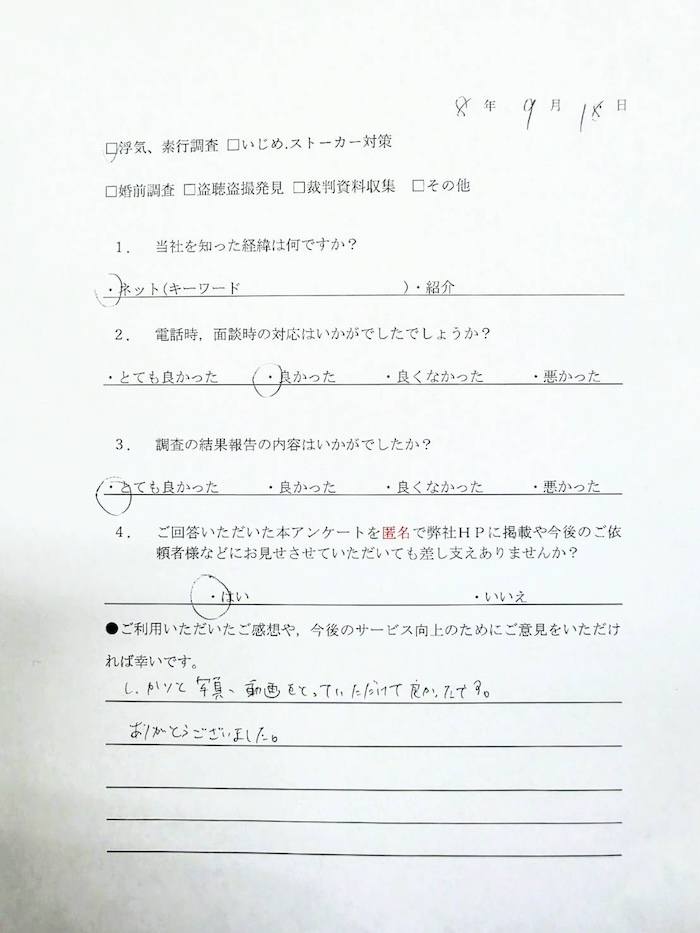 8年 9月 15日
□浮気、素行調査 □いじめ.ストーカー対策
□婚前調査 □盗聴盗撮発見 □裁判資料収集 □その他
1. 当社を知った経緯は何ですか？
・ネット(キーワード )・紹介
2. 電話時，面談時の対応はいかがでしたでしょうか？
・とても良かった ・良かった ・良くなかった ・悪かった
3. 調査の結果報告の内容はいかがでしたか？
・とても良かった ・良かった ・良くなかった ・悪かった
4. ご回答いただいた本アンケートを匿名で弊社ＨＰに掲載や今後のご依
頼者様などにお見せさせていただいても差し支えありませんか？
・はい ・いいえ
●ご利用いただいたご感想や，今後のサービス向上のためにご意見をいただけ
れば幸いです。
しっかりと写真、動画をとっていただけて良かったです。
ありがとうございました。